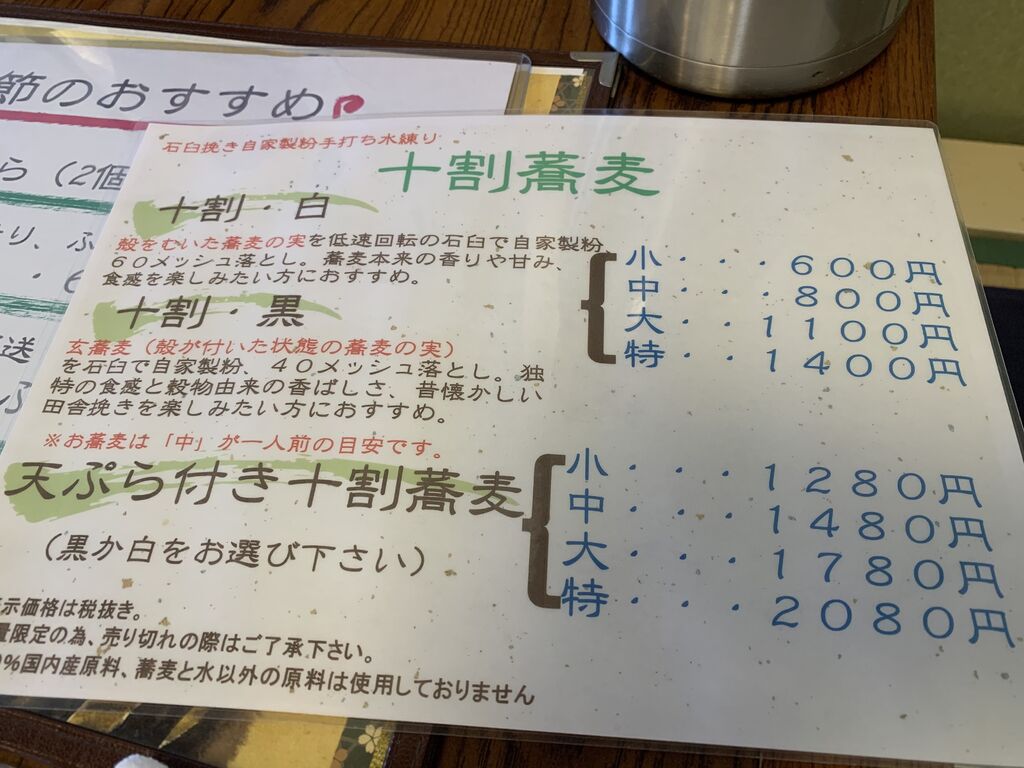 節のおすすめ
ら（2個
り、ふ
・６
送
ふ
石臼挽き自家製粉手打ち水練り
十割蕎麦
十割・白
殻をむいた蕎麦の実を低速回転の石臼で自家製粉
６０メッシュ落とし。蕎麦本来の香りや甘み、
食感を楽しみたい方におすすめ。
十割・黒
玄蕎麦（殻が付いた状態の蕎麦の実）
を石臼で自家製粉、４０メッシュ落とし。独
特の食感と穀物由来の香ばしさ、昔懐かしい
田舎挽きを楽しみたい方におすすめ。
小・・・６００円
中・・・８００円
大・・１１００円
特・・１４００円
※お蕎麦は「中」が一人前の目安です。
天ぷら付き十割蕎麦
（黒か白をお選び下さい）
小・・・１２８０円
中・・・１４８０円
大・・・１７８０円
特・・・２０８０円
示価格は税抜き。
量限定の為、売り切れの際はご了承下さい。
%国内産原料、蕎麦と水以外の原料は使用しておりません